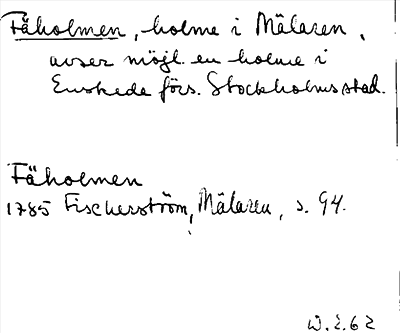 Fäholmen, holme i Mälaren,
avser möjl. en holme i
Enskede förs. Stockholms stad.
Fäholmen
1785 Fischerström, Mälaren, s. 94.
W.2.62